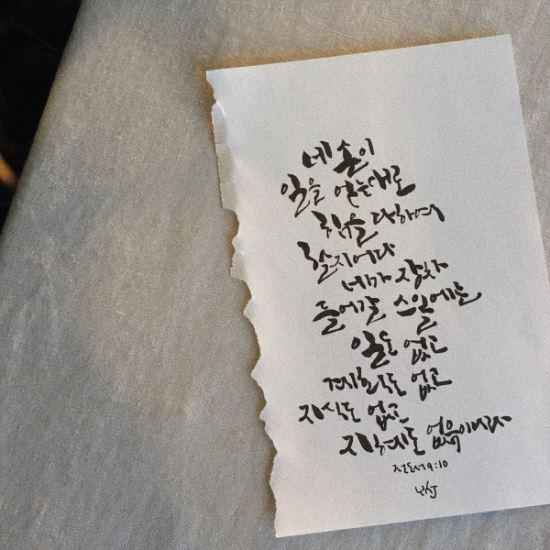 네 손이
일을 얻는대로
힘을 다하여
할지어다
네가 장차
들어갈 스올에는
일도 없고
계획도 없고
지식도 없고
지혜도 없음이니라
전도서 9:10